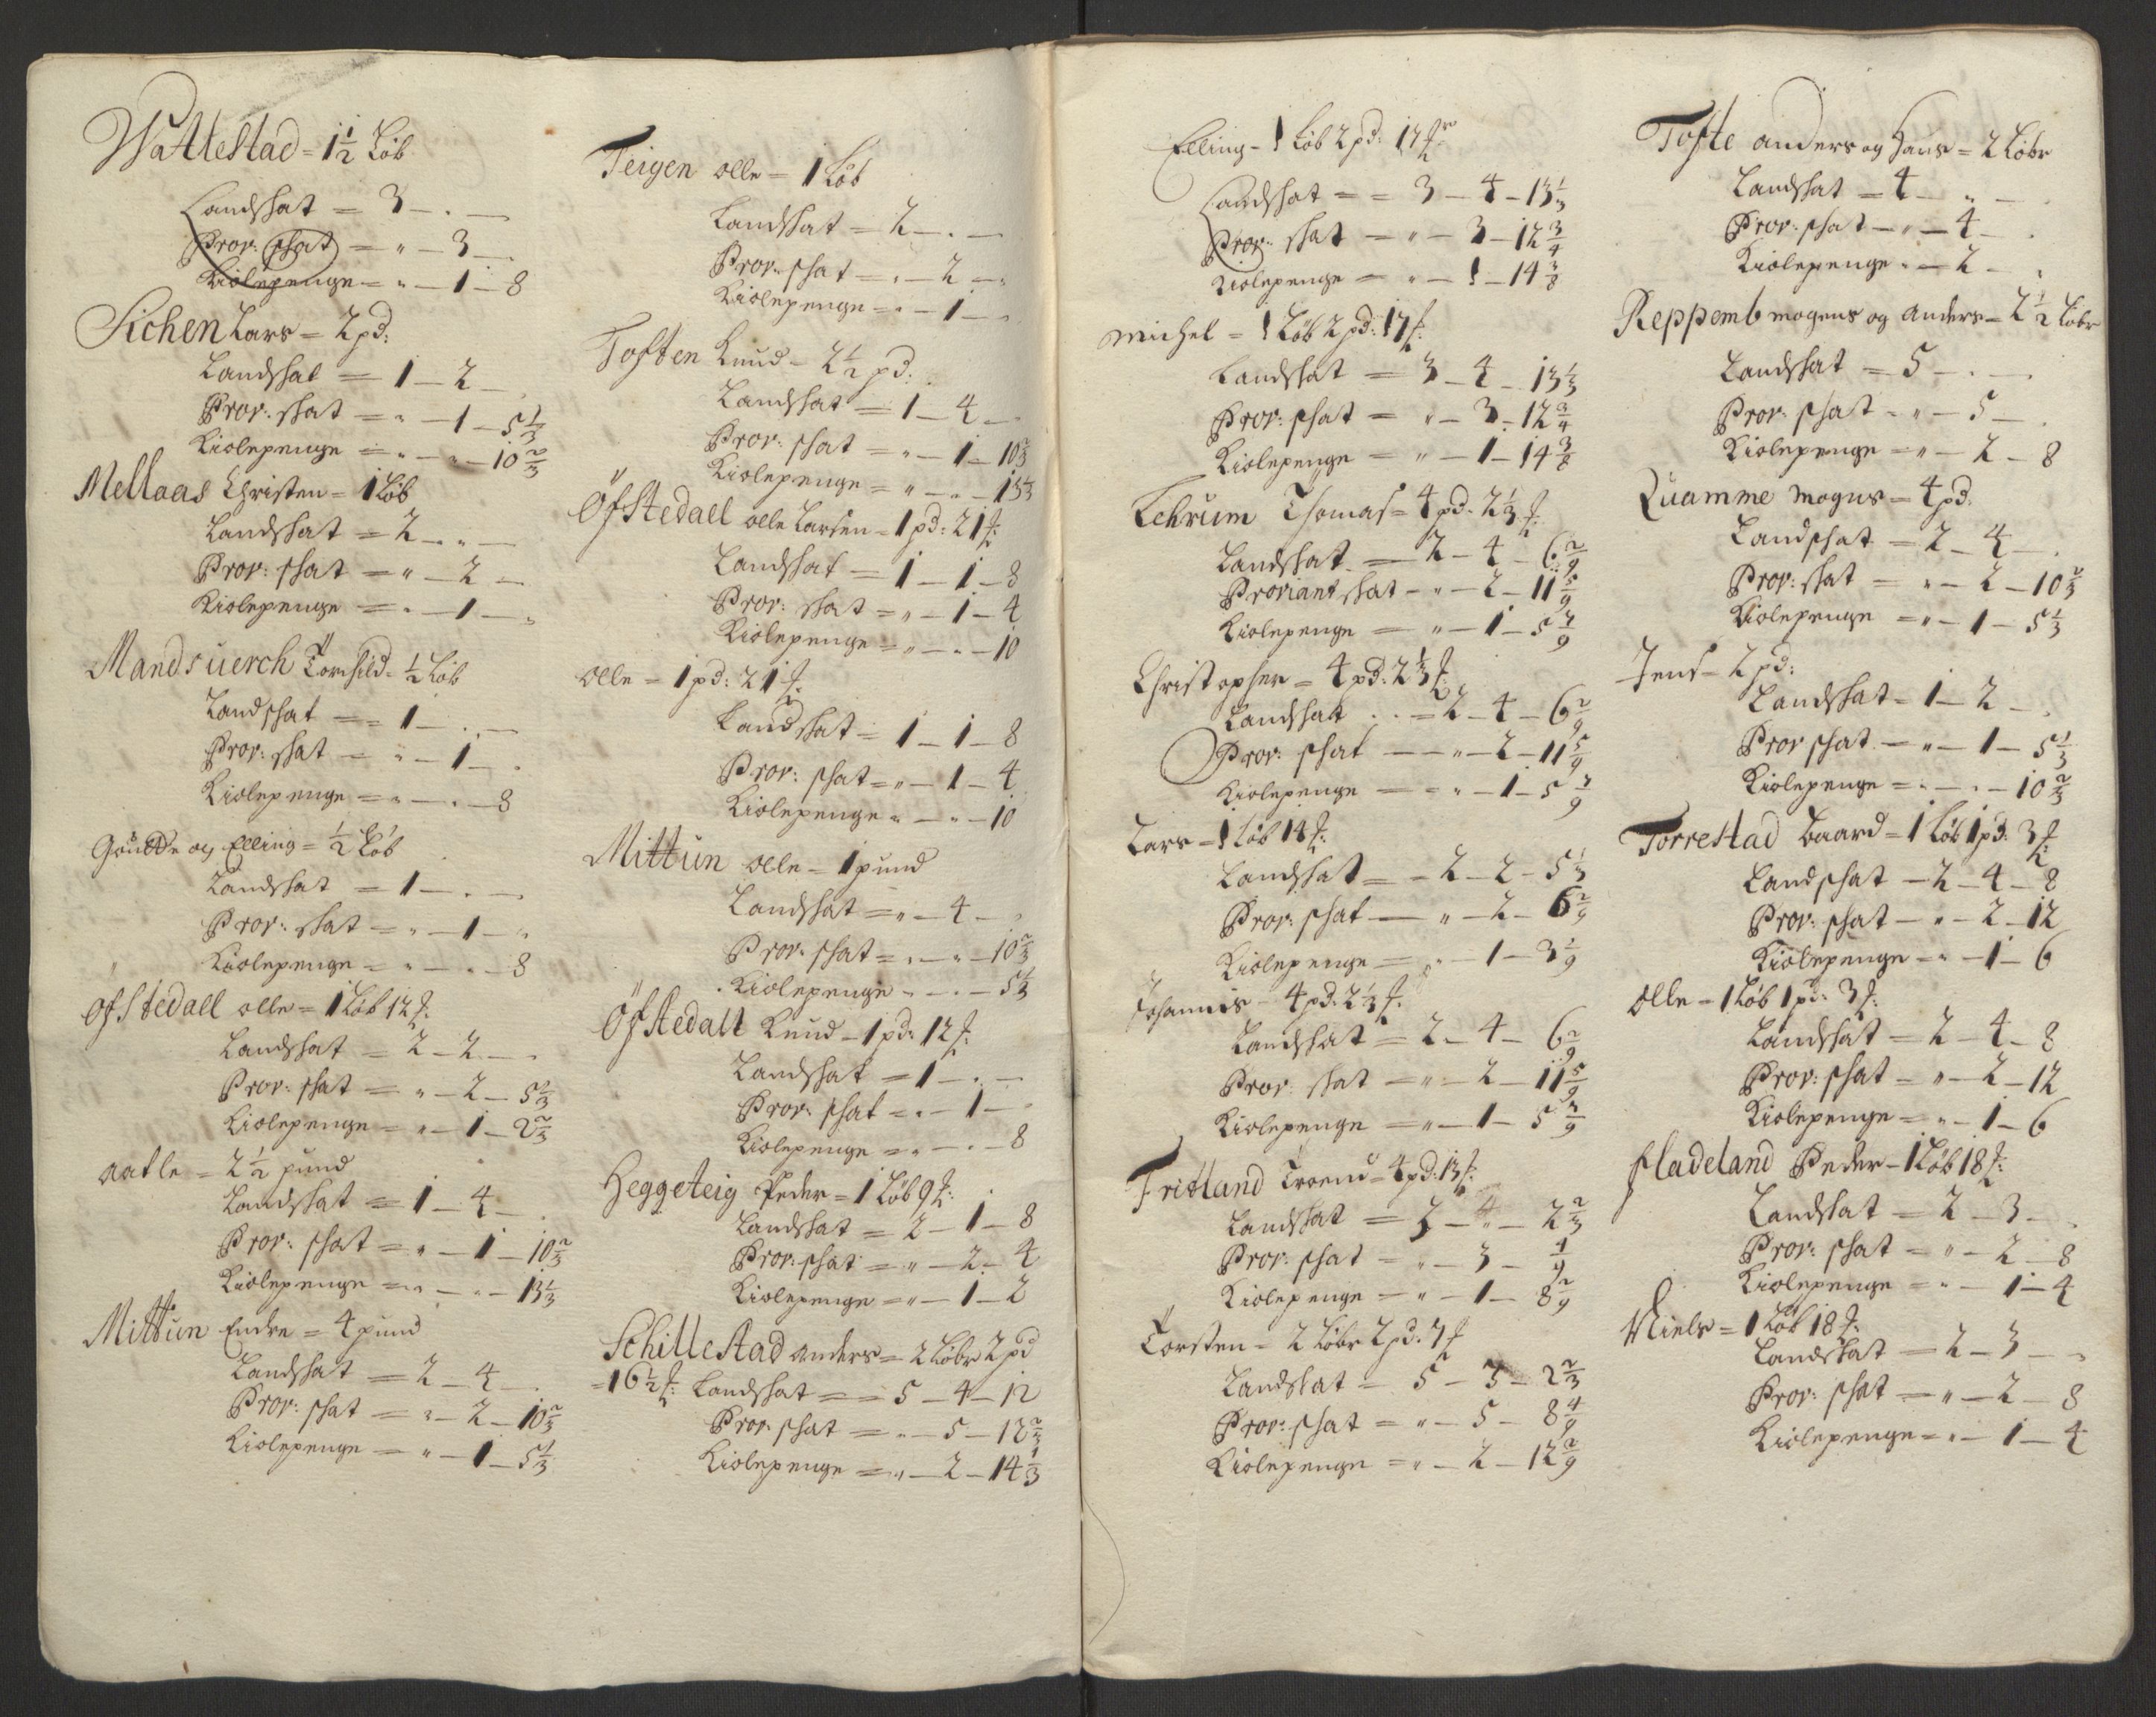 Wattestad = 1½ Løb
Landskat = 3 — . —
Prov: skat = " — 3 — .
Kiolepenge = " — 1 — 8
Sichen Lars = 2 pd:
Landskat = 1 — 2 —
Prov: skat = " — 1 — 5⅓
Kiolepenge = " — " — 10⅔
Mellaas Christen = 1 Løb
Landskat = 2 — " —
Prov: skat = " — 2 —
Kiolepenge = " — 1 — "
Mandsuerch Tornild = ½ Løb
Landskat = 1 — . —
Prov: skat = " — 1 — .
Kiolepenge = " — . — 8
Goutte og Elling = ½ Løb
Landskat = 1 — . —
Prov: skat = " — 1 — "
Kiolepenge = " — . — 8
Ofstedall olle = 1 Løb 12 ₰:
Landskat = 2 — 2 — .
Prov: skat = " — 2 — 5⅓
Kiolepenge = " — 1 — 2⅔
Aatle = 2½ pund
Landskat = 1 — 4 — .
Prov: skat = " — 1 — 10⅔
Kiolepenge = " — " — 13⅓
Mittun Endre = 4 pund
Landskat = 2 — 4 — .
Prov: skat = " — 2 — 10⅔
Kiolepenge = " — 1 — 5⅓
Teigen olle = 1 Løb
Landskat = 2 — . —
Prov: skat = " — 2 — "
Kiolepenge = " — 1 — .
Toften Knud = 2½ pd:
Landskat = 1 — 4 — .
Prov: skat = " — 1 — 10⅔
Kiolepenge = " — " — 13⅓
Ofstedall olle Larsen = 1 pd: 21 ₰:
Landskat = 1 — 1 — 8
Prov: skat = " — 1 — 4
Kiolepenge = " — . — 10
olle = 1 pd: 21 ₰:
Landskat = 1 — 1 — 8
Prov: skat = " — 1 — 4
Kiolepenge = " — " — 10
Mittun olle = 1 pund
Landskat = " — 4 — .
Prov: skat = " — " — 10⅔
Kiolepenge = — . — 5⅓
Ofstedall Knud = 1 pd: 12 ₰:
Landskat = 1 — . —
Prov: skat = " — 1 — .
Kiolepenge = " — . — 8
Heggeteig Peder = 1 Løb 9 ₰:
Landskat = 2 — 1 — 8
Prov: skat = " — 2 — 4
Kiolepenge = " — 1 — 2
Schillestad anders = 2 Løbe 2 pd
= 16½ ₰: Landskat = 5 — 4 — 12
Prov: skat = " — 5 — 12⅔
Kiolepenge = " — 2 — 14⅓
Elling = 1 Løb 2 pd: 17 ₰
Landskat = 3 — 4 — 13⅓
Prov: skat — " — 3 — 12¾
Kiolepenge = " — 1 — 14⅜
Michel = 1 Løb 2 pd: 17 ₰:
Landskat = 3 — 4 — 13⅓
Prov: skat = " — 3 — 12¾
Kiolepenge = " — 1 — 14⅜
Lehrum Thomas = 4 pd: 2⅓ ₰:
Landskat = 2 — 4 — 6 2/9
Proviantskat — " — 2 — 11 5/9
Kiolepenge = " — 1 — 5 7/9
Christopher = 4 pd: 2⅓ ₰:
Landskat . . = 2 — 4 — 6 2/9
Prov: skat — " — 2 — 11 5/9
Kiolepenge = " — 1 — 5 7/9
Lars = 1 Løb 14 ₰:
Landskat = 2 — 2 — 5⅓
Prov: skat — " — 2 — 6 2/9
Kiolepenge = " — 1 — 3 1/9
Johannis = 4 pd: 2⅓ ₰:
Landskat = 2 — 4 — 6 2/9
Prov: skat = " — 2 — 11 5/9
Kiolepenge = " — 1 — 5 7/9
Fritland Troend = 4 pd: 13 ₰:
Landskat = 3 — " — 2⅔
Prov: skat = " — 3 — 4/9
Kiolepenge = " — 1 — 8 2/9
Torsten = 2 Løbe 2 pd: 7 ₰
Landskat = 5 — 3 — 2⅔
Prov: skat = " — 5 — 8 4/9
Kiolepenge = " — 2 — 12 2/9
Tofte anders og Hans = 2 Løbe
Landskat = 4 — " — .
Prov: skat — " — 4 — .
Kiolepenge " — 2 — "
Reppemb mogens og Anders = 2½ Løbe
Landskat = 5 — . — .
Prov: skat = " — 5 — .
Kiolepenge = " — 2 — 8
Quamme Mogns = 4 pd:
Landskat = 2 — 4 — .
Prov: skat = " — 2 — 10⅔
Kiolepenge = " — 1 — 5⅓
Jens = 2 pd:
Landskat = 1 — 2 — .
Prov skat = " — 1 — 5⅓
Kiolepenge = " — . — 10⅔
Torrestad Baard = 1 Løb 1 pd: 3 ₰:
Landskat — 2 — 4 — 8
Prov: skat — " — 2 — 12
Kiolepenge — " — 1 — 6
Olle = 1 Løb 1 pd: 3 ₰:
Landskat = 2 — 4 — 8
Prov: skat = " — 2 — 12
Kiolepenge = " — 1 — 6
Fladeland Peder = 1 Løb 18 ₰:
Landskat = 2 — 3 — .
Prov: skat = " — 2 — 8
Kiolepenge = " — 1 — 4
Niels = 1 Løb 18 ₰:
Landskat — 2 — 3 — "
Prov: skat = " — 2 — 8
Kiolepenge = " — 1 — 4